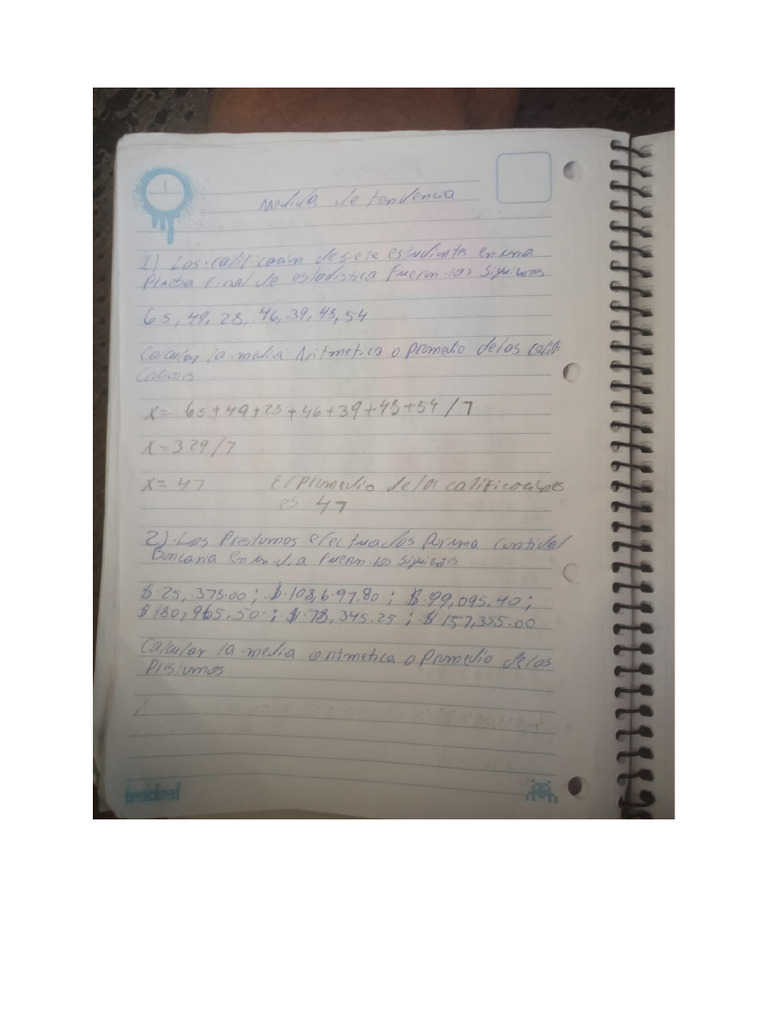 1
Medida de tendencia
1) Las calificacion de siete estudiantes en una
Prueba Final de estadistica Fueron las Siguientes
65, 49, 28, 46, 39, 48, 54
Calcular la media Aritmetica o promedio de las califi
caciones
X= 65+49+28+46+39+48+54/7
X=329/7
X= 47 El Promedio de las calificaciones
es 47
2) Los Prestamos efectuados Por una Bancaria en un dia Fueron los siguientes
$ 25,375.00; $ 108,697.80; $ 99,095.40;
$ 180,965.50; $ 78,345.25; $ 157,355.00
Calcular la media aritmetica o Promedio de los
Prestamos
X=